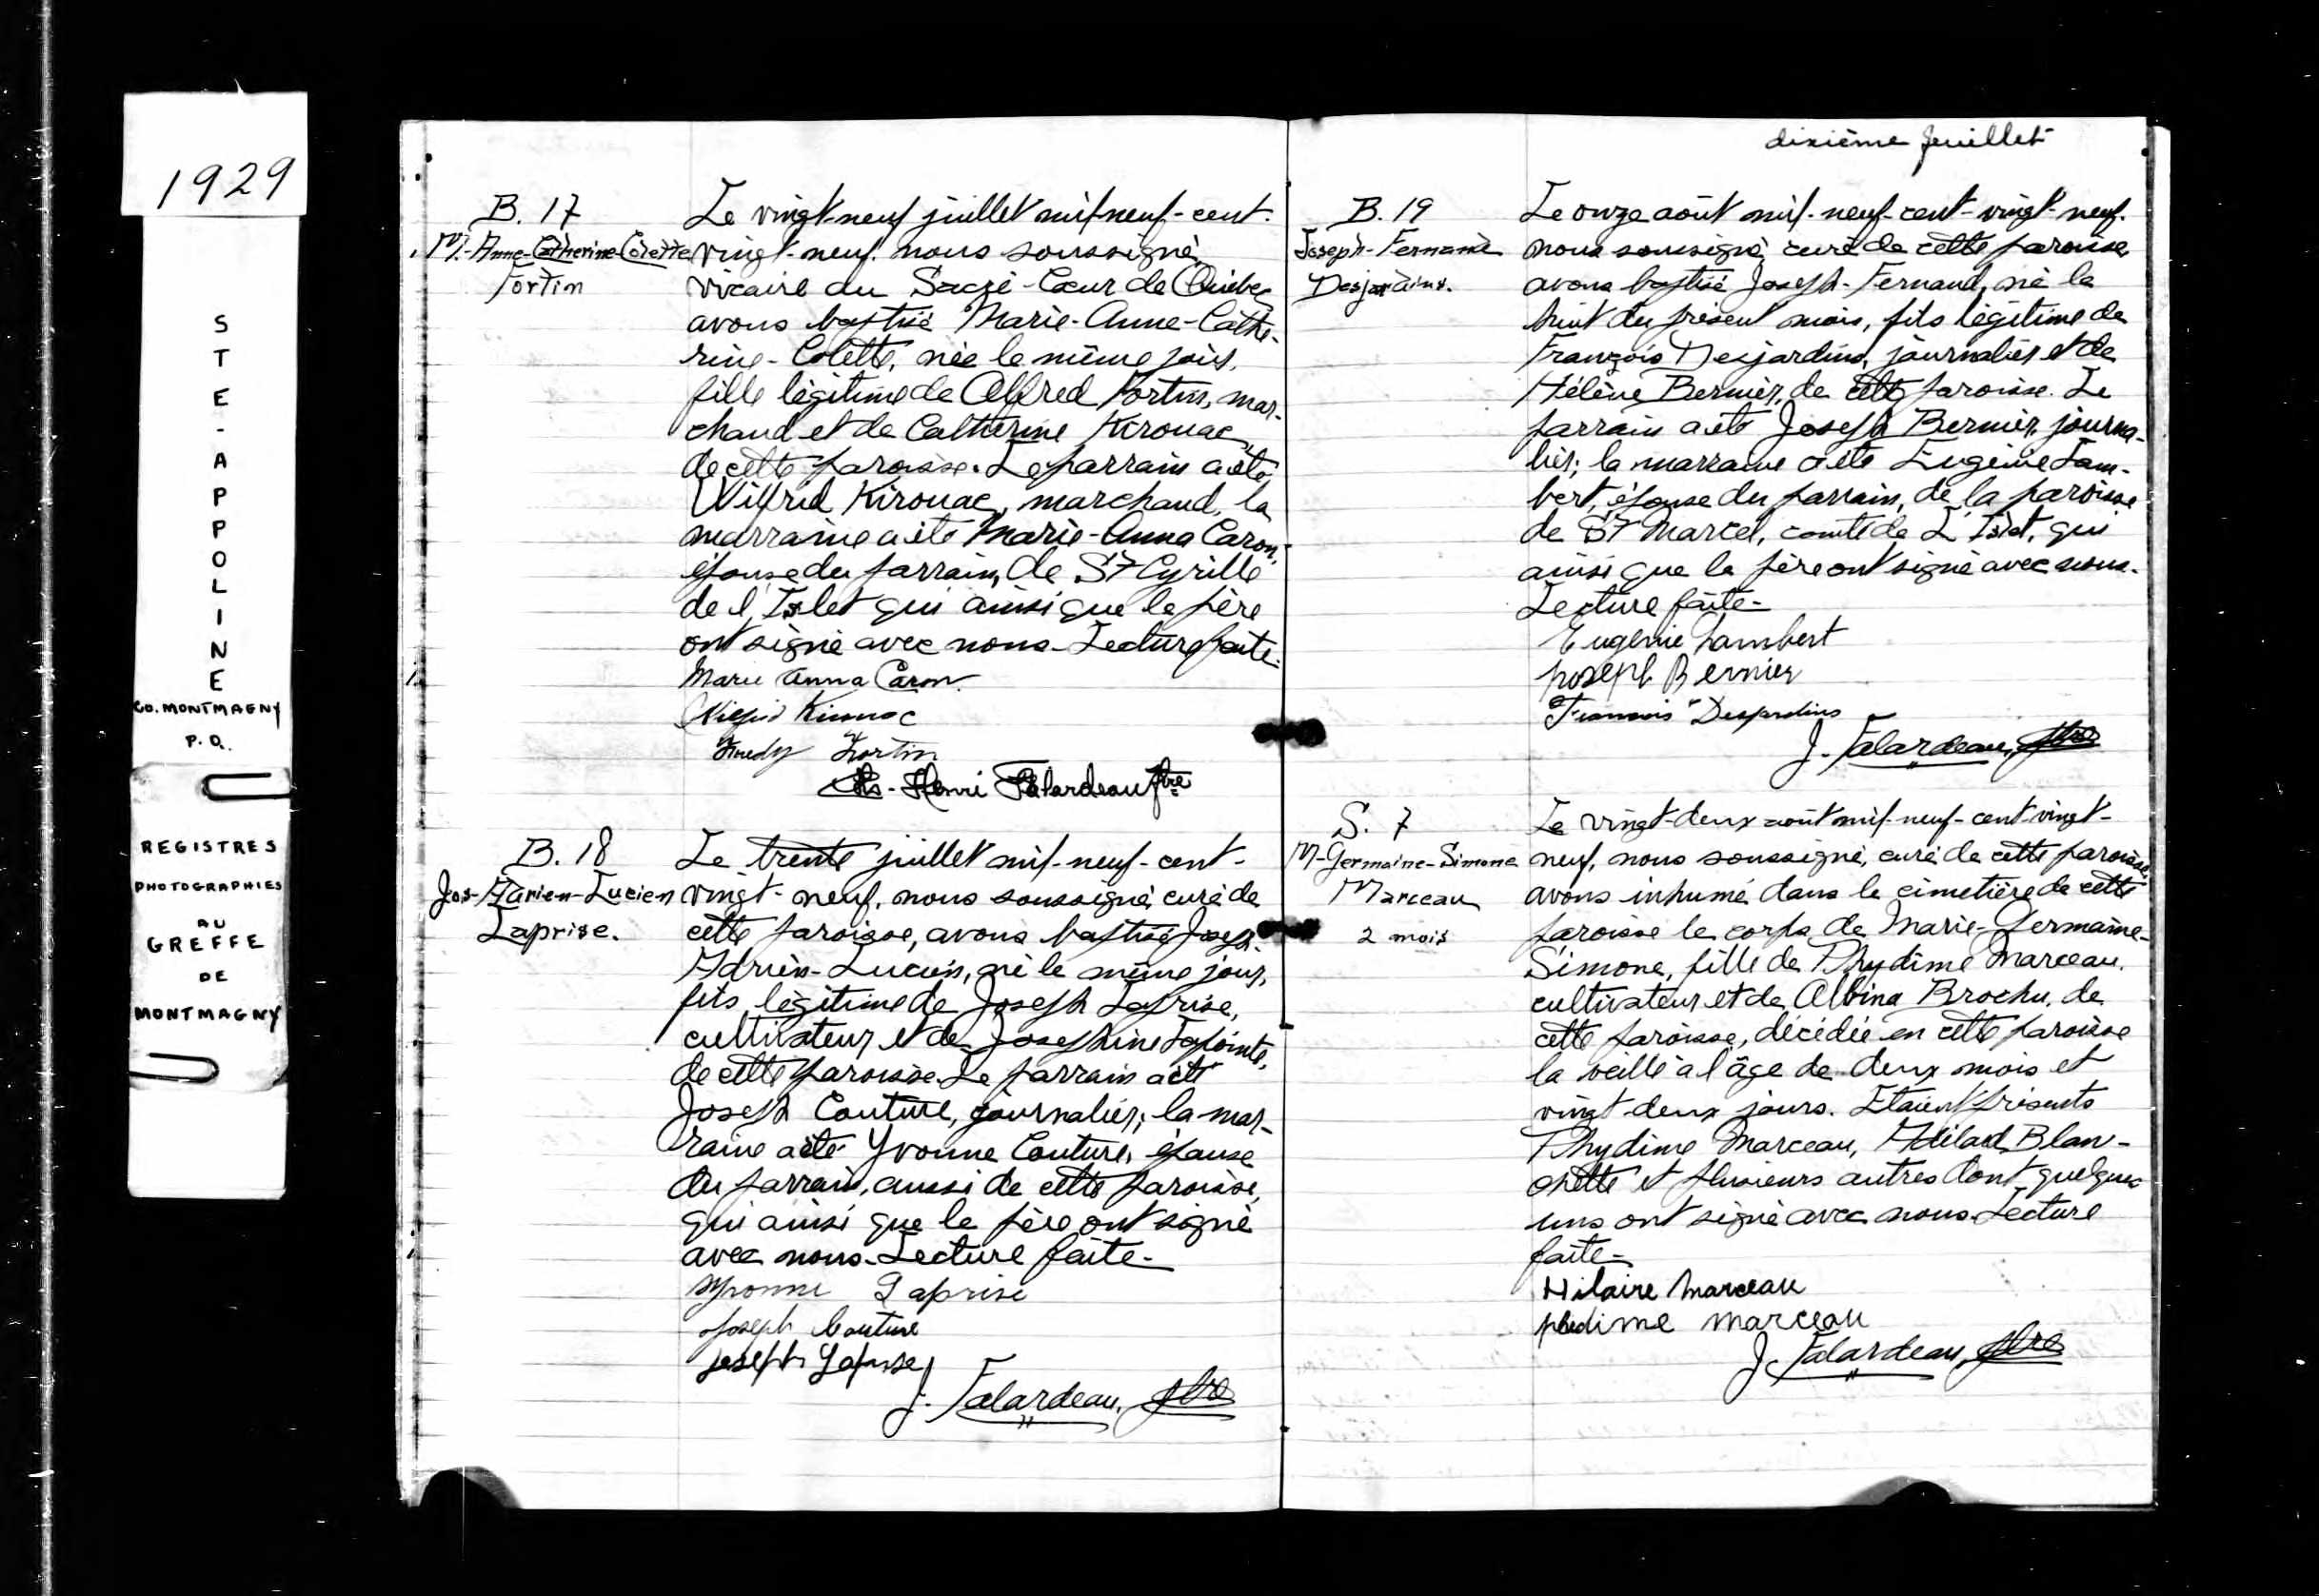 1929
STE-APPOLINE
CO. MONTMAGNY
P.Q.
REGISTRES
PHOTOGRAPHIES
AU
GREFFE
DE
MONTMAGNY
B. 17
M.-Anne-Catherine-Colette
Fortin
Le vingt-neuf juillet mil-neuf-cent-
vingt-neuf, nous soussigné
vicaire du Sacré-Cœur de Québec
avons baptisé Marie-Anne-Cathe-
rine-Colette, née le même jour,
fille légitime de Alfred Fortin, mar-
chand et de Catherine Kirouac,
de cette paroisse. Le parrain a été
Wilfrid Kirouac, marchand, la
marraine a été Marie-Anna Caron,
épouse du parrain, de St Cyrille
de l'Islet qui ainsi que le père
ont signé avec nous. Lecture faite.
Marie Anna Caron
Wilfrid Kirouac
Fortin
Chs-Henri Falardeau ptre
B. 18
Jos-Adrien-Lucien
Laprise.
Le trente juillet mil-neuf-cent-
vingt-neuf, nous soussigné, curé de
cette paroisse, avons baptisé Joseph-
Adrien-Lucien, né le même jour,
fils légitime de Joseph Laprise,
cultivateur et de Josephine Lapointe,
de cette paroisse. Le parrain a été
Joseph Couture, journalier; la mar-
raine a été Yvonne Couture, épouse
du parrain, aussi de cette paroisse,
qui ainsi que le père ont signé
avec nous. Lecture faite-
Yvonne Laprise
Joseph Couture
Joseph Laprise
J. Falardeau, ptre
dixième feuillet
B. 19
Joseph-Fernand
Desjardins.
Le onze août mil-neuf-cent-vingt-neuf.
nous soussigné, curé de cette paroisse
avons baptisé Joseph-Fernand, né le
huit du présent mois, fils légitime de
François Desjardins, journalier et de
Hélène Bernier, de cette paroisse. Le
parrain a été Joseph Bernier, journa-
lier; la marraine a été Eugénie Lam-
bert, épouse du parrain, de la paroisse
de St Marcel, comté de L'Islet, qui
ainsi que le père ont signé avec nous.
Lecture faite-
Eugénie Lambert
Joseph Bernier
François Desjardins
J. Falardeau, ptre
S. 7
M-Germaine-Simone
Marceau
2 mois
Le vingt-deux août mil-neuf-cent-vingt-
neuf, nous soussigné, curé de cette paroisse,
avons inhumé dans le cimetière de cette
paroisse le corps de Marie-Germaine-
Simone, fille de Phydime Marceau,
cultivateur et de Albina Brochu, de
cette paroisse, décédée en cette paroisse
la veille à l'âge de deux mois et
vingt-deux jours. Etaient présents
Phydime Marceau, Adélard Blan-
chette et plusieurs autres dont quelques
uns ont signé avec nous. Lecture
faite-
Hilaire Marceau
phedime marceau
J. Falardeau, ptre